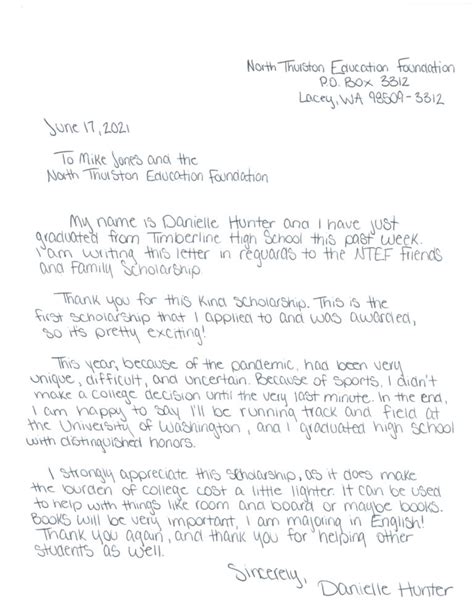 North Thurston Education Foundation
P.O. Box 3312
Lacey, WA 98509-3312
June 17, 2021
To Mike Jones and the
North Thurston Education Foundation
My name is Danielle Hunter and I have just
graduated from Timberline High School this past week.
I am writing this letter in reguards to the NTEF friends
and Family Scholarship.
Thank you for this kind scholarship. This is the
first scholarship that I applied to and was awarded,
so its pretty exciting!
This year, because of the pandemic, had been very
unique, difficult, and uncertain. Because of sports, I didn't
make a college decision until the very last minute. In the end,
I am happy to say I'll be running track and field at
the University of Washington, and I graduated high school
with distinguished honors.
I strongly appreciate this scholarship, as it does make
the burden of college cost a little lighter. It can be used
to help with things like room and board or maybe books.
Books will be very important, I am majoring in English!
Thank you again, and thank you for helping other
students as well.
Sincerely,
Danielle Hunter